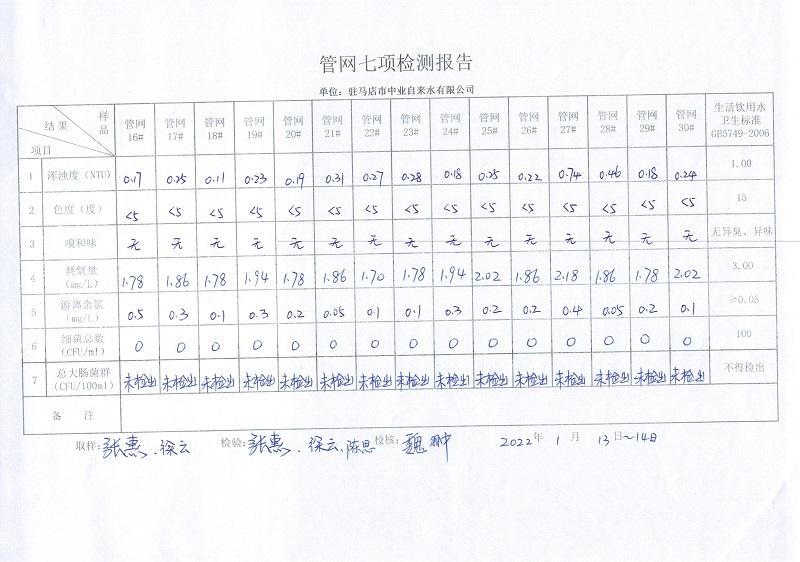 管网七项检测报告
单位：驻马店市中业自来水有限公司
项目 结果 样品 管网16# 管网17# 管网18# 管网19# 管网20# 管网21# 管网22# 管网23# 管网24# 管网25# 管网26# 管网27# 管网28# 管网29# 管网30# 生活饮用水卫生标准GB5749-2006
1 浑浊度（NTU） 0.17 0.25 0.11 0.23 0.19 0.31 0.27 0.28 0.18 0.25 0.22 0.74 0.46 0.18 0.24 1.00
2 色度（度） <5 <5 <5 <5 <5 <5 <5 <5 <5 <5 <5 <5 <5 <5 <5 15
3 嗅和味 无 无 无 无 无 无 无 无 无 无 无 无 无 无 无 无异臭、异味
4 耗氧量（mg/L） 1.78 1.86 1.78 1.94 1.78 1.86 1.70 1.78 1.94 2.02 1.86 2.18 1.86 1.78 2.02 3.00
5 游离余氯（mg/L） 0.5 0.3 0.1 0.3 0.2 0.05 0.1 0.1 0.3 0.2 0.2 0.4 0.05 0.2 0.1 ≥0.05
6 细菌总数（CFU/ml） 0 0 0 0 0 0 0 0 0 0 0 0 0 0 0 100
7 总大肠菌群（CFU/100ml） 未检出 未检出 未检出 未检出 未检出 未检出 未检出 未检出 未检出 未检出 未检出 未检出 未检出 未检出 未检出 不得检出
备 注
取样：张惠、徐云 检验：张惠、徐云、陈思 校核：魏翀 2022年1月13日~14日